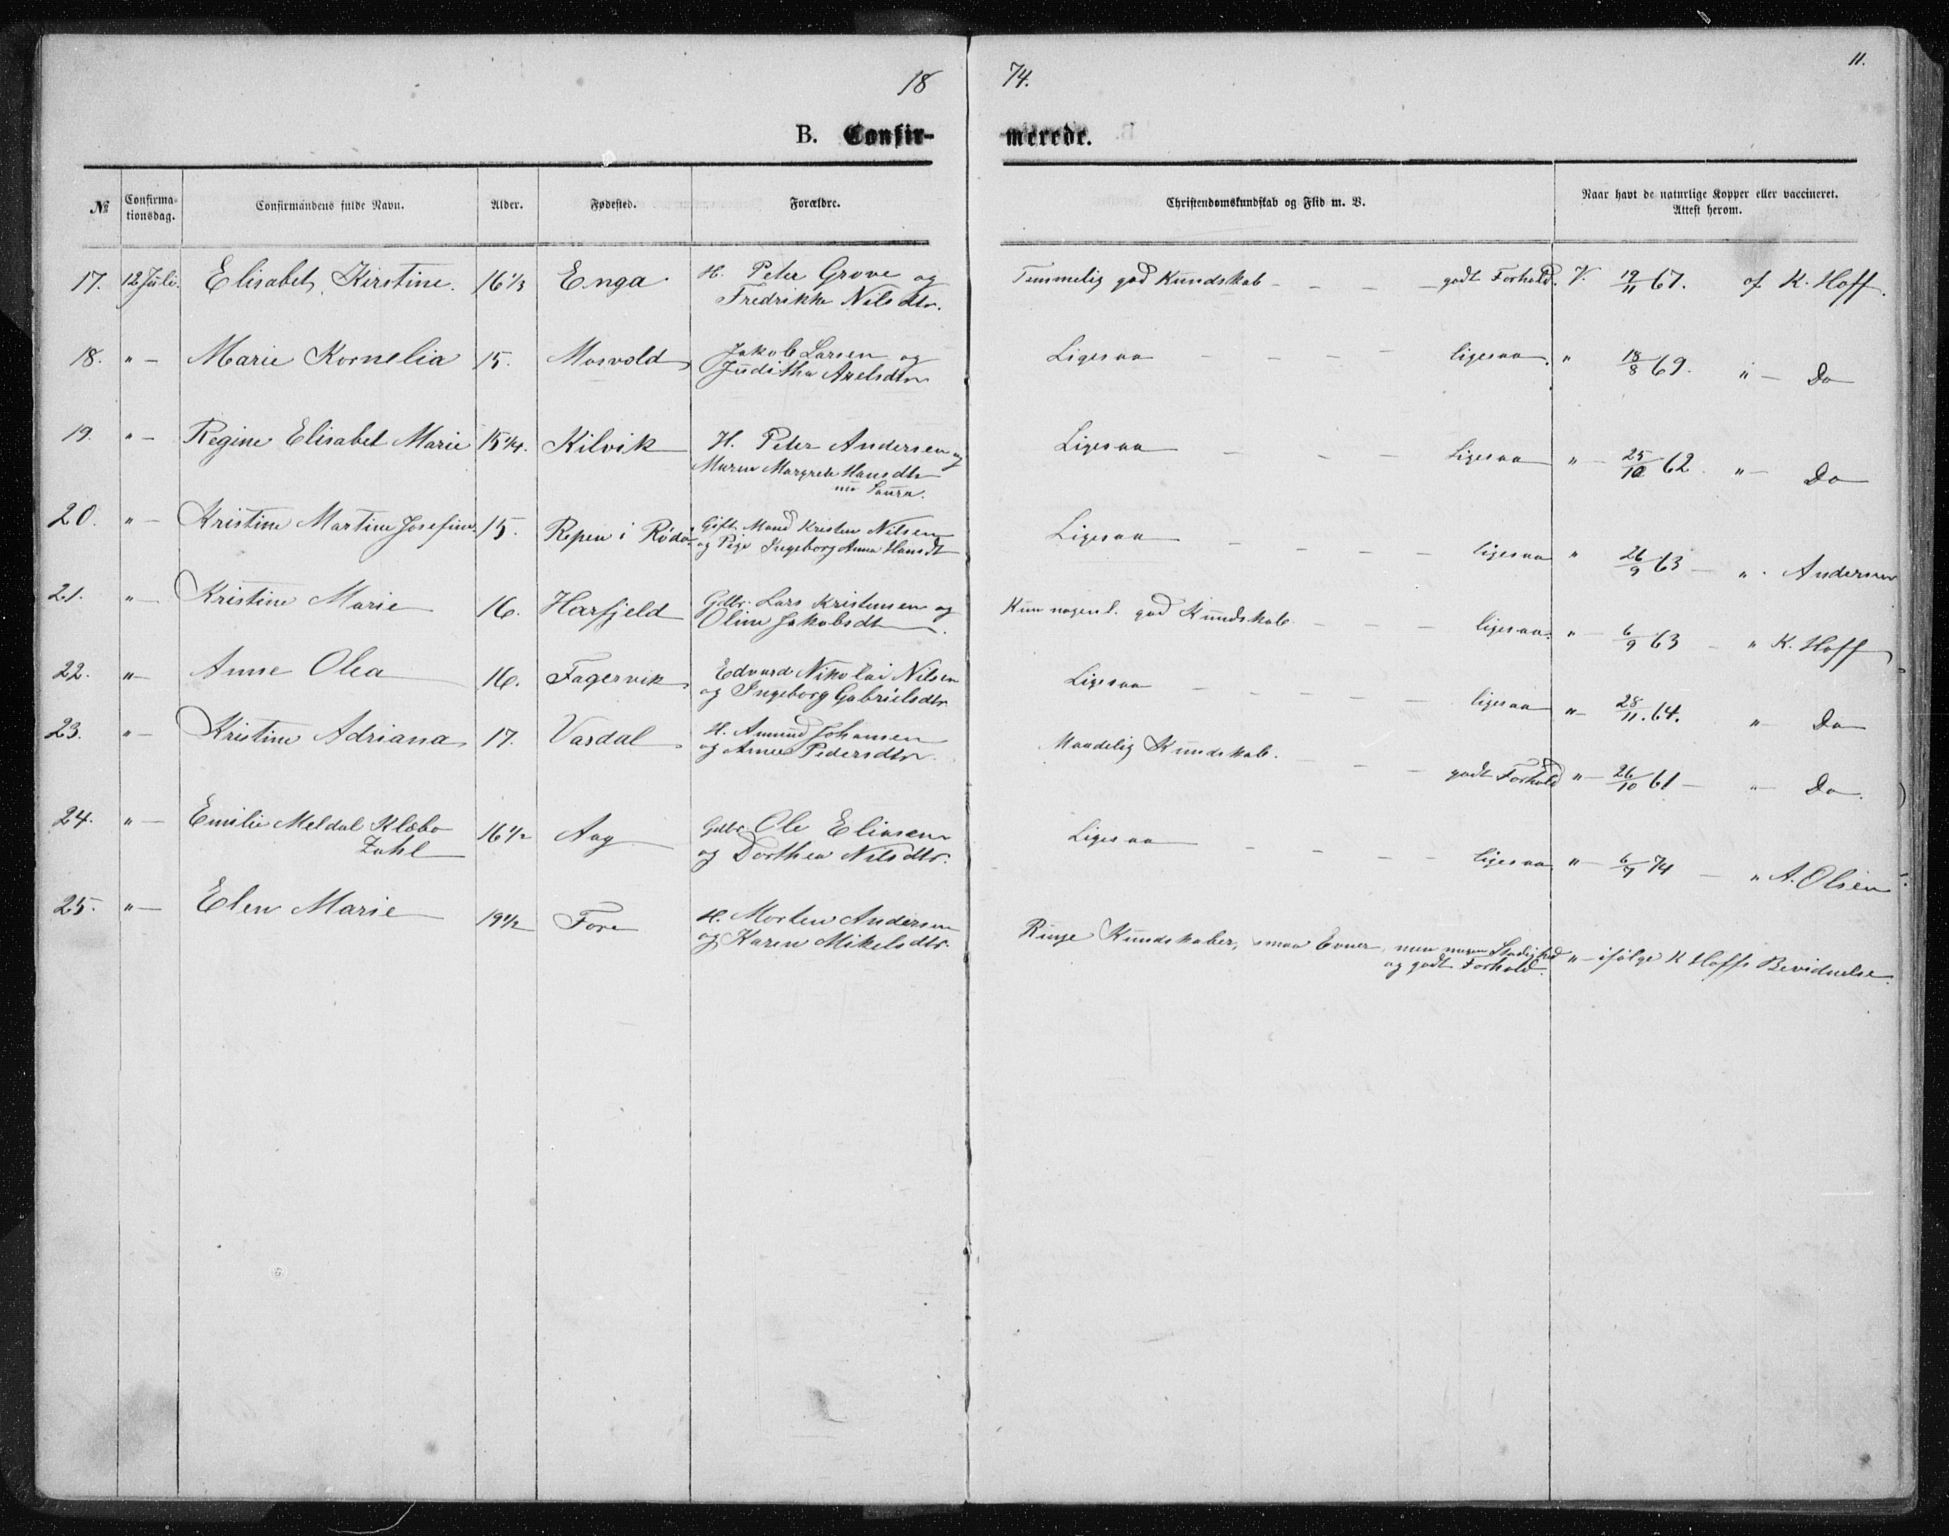 18 74. 11.
B. Confirmerede.
№ Confirmationsdag. Confirmandens fulde Navn. Alder. Fødested. Forældre. Christendomskundskab og Flid m. V. Naar havt de naturlige Kopper eller vaccineret. Attest herom.
17. 12 Juli. Elisabet Kirstine. 16 1/3 Enga H. Peter Grove og Temmelig god Kundskab - - - - godt Forhold. V. 19/11 67. af K. Hoff.
Fredrikke Nilsdtr.
18. " — Marie Kornelia 15. Mosvold Jakob Larsen og Ligesaa - - - - ligesaa. " 18/8 69. " — Do
Juditha Axelsdtr
19. " — Regine Elisabet Marie 15 1/4. Kilvik H. Peter Andersen og Ligesaa - - - - Ligesaa " — 25/10 62. " — Do
Maren Margrete Hansdtr
20. " — Kristine Martine Josefine. 15. Repen i Rödö. Gift Mand Kristen Nilsen Ligesaa - - - - ligesaa " 26/9 63 — " Andersen
og Pige Ingeborg Anna Hansdt
21. " — Kristine Marie 16. Harfjeld Gdbr. Lars Kristensen og Kun nogenl. god Kundskab. - - - ligesaa. " — 6/9 63 — " K. Hoff
Oline Jakobsdt
22. " — Anne Olea 16. Fagervik Edvard Nikolai Nilsen Ligesaa - - - - ligesaa " — 28/11. 64. " Do
og Ingeborg Gabrielsdtr
23. " — Kristine Adriana 17. Vasdal H. Amund Johansen Maadelig Kundskab. - - - godt Forhold " — 26/10 61 — " Do.
og Anne Pedersdtr.
24. " — Emilie Meldal Klæbo 16 1/2 Aag Gdbr Ole Eliasen Ligesaa - - - - ligesaa " — 6/7 74 — " A. Olsen
Zahl og Dorthea Nilsdtr.
25. " — Elen Marie 19 1/2 Fore H. Morten Andersen Ringe Kundskaber, smaa Evner, men nogen Stadighed " — ifølge K Hoffs Bevidnelse.
og Karen Mikelsdtr. og godt Forhold.